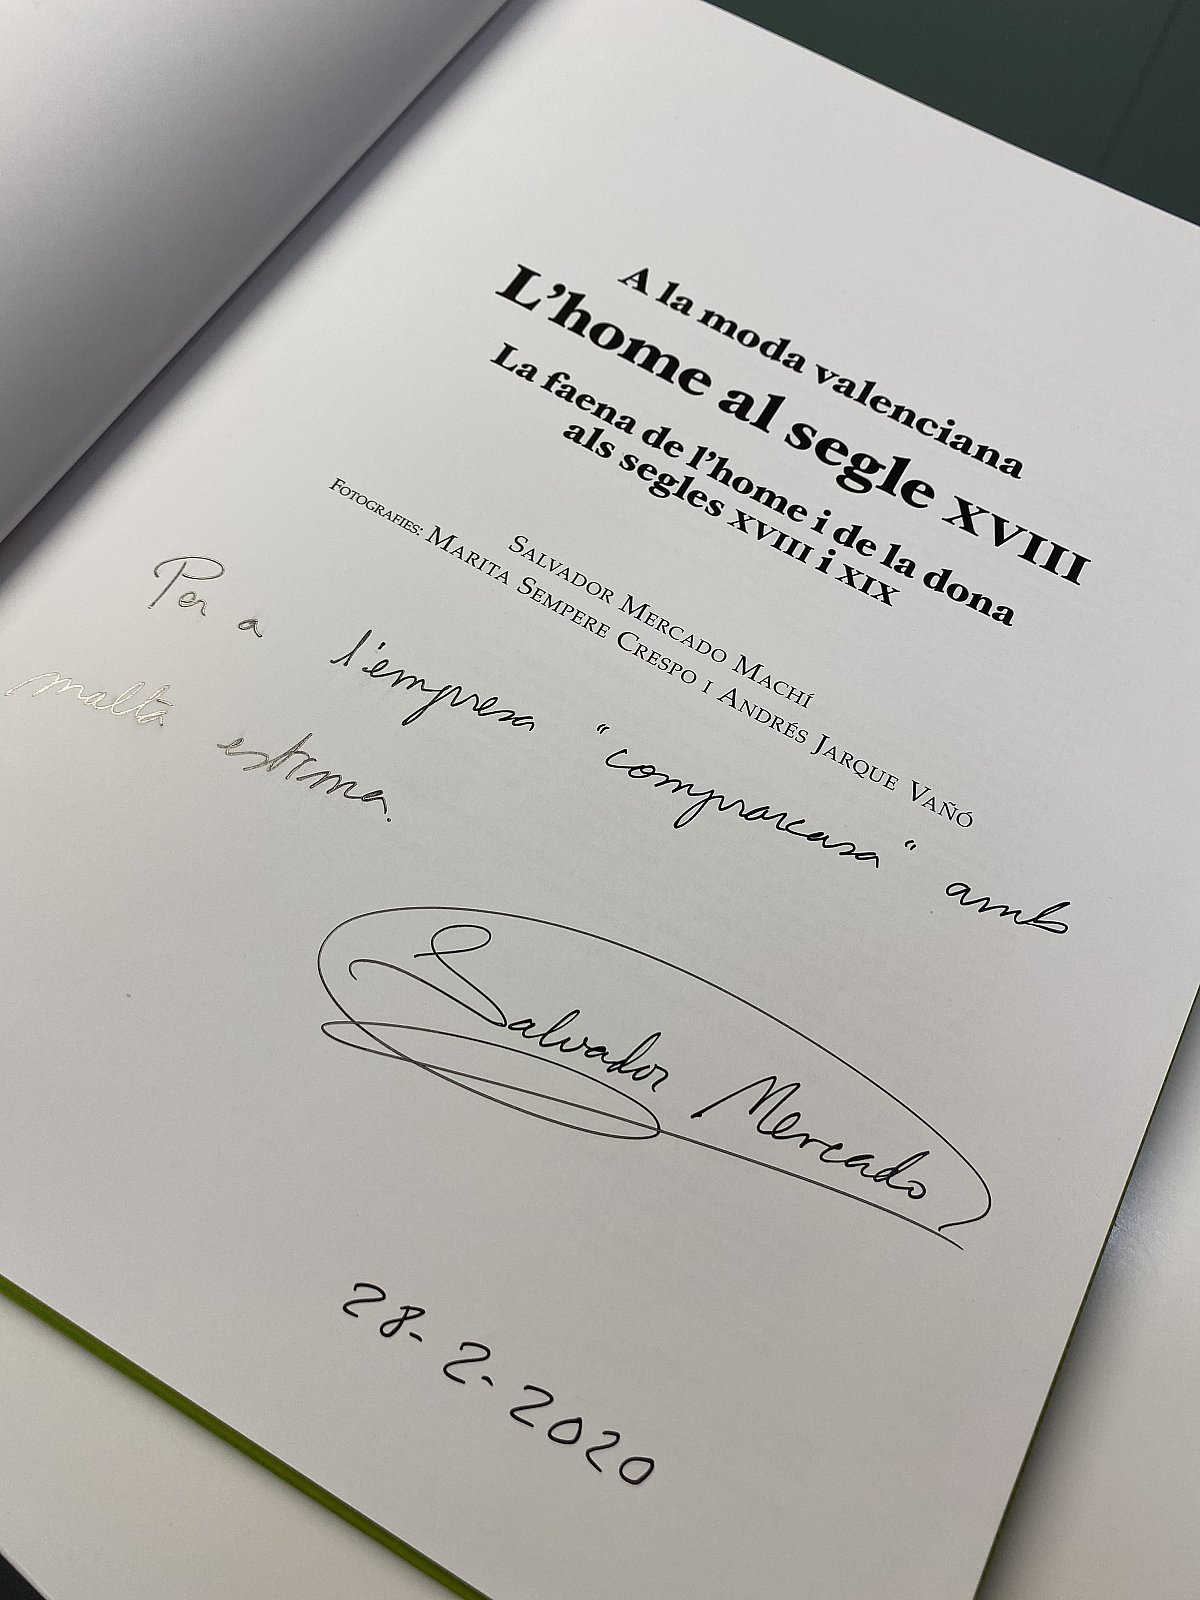 A la moda valenciana
L'home al segle XVIII
La faena de l'home i de la dona
als segles XVIII i XIX
SALVADOR MERCADO MACHÍ
FOTOGRAFIES: MARITA SEMPERE CRESPO I ANDRÉS JARQUE VAÑÓ
Per a l'empresa "comprarcasa" amb
malta estima.
Salvador Mercado
28-2-2020